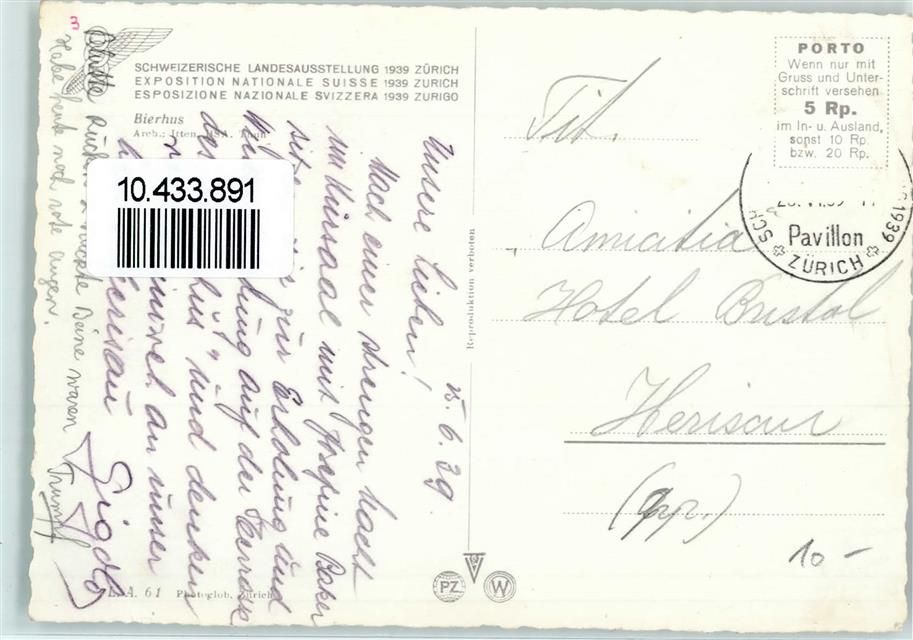 3
SCHWEIZERISCHE LANDESAUSSTELLUNG 1939 ZÜRICH
EXPOSITION NATIONALE SUISSE 1939 ZURICH
ESPOSIZIONE NAZIONALE SVIZZERA 1939 ZURIGO
Bierhus
Arch.: Itten, BSA, Thun
10.433.891
25.6.39
Unsere Lieben!
Nach einer strengen Nacht
im Kursaal mit Josephine Baker
sitzen wir zur Erholung und
auf der Terrasse
des und denken
an unser
Herisau
Habe heute noch rote Augen.
Beine waren Trumpf
L.A. 61 Photoglob, Zürich
Reproduktion verboten
PZ
W
PORTO
Wenn nur mit
Gruss und Unter-
schrift versehen
5 Rp.
im In- u. Ausland,
sonst 10 Rp.
bzw. 20 Rp.
1939
Pavillon
ZÜRICH
Tit.
Amicitia
Hotel Bristol
Herisau
(App.)
10 –